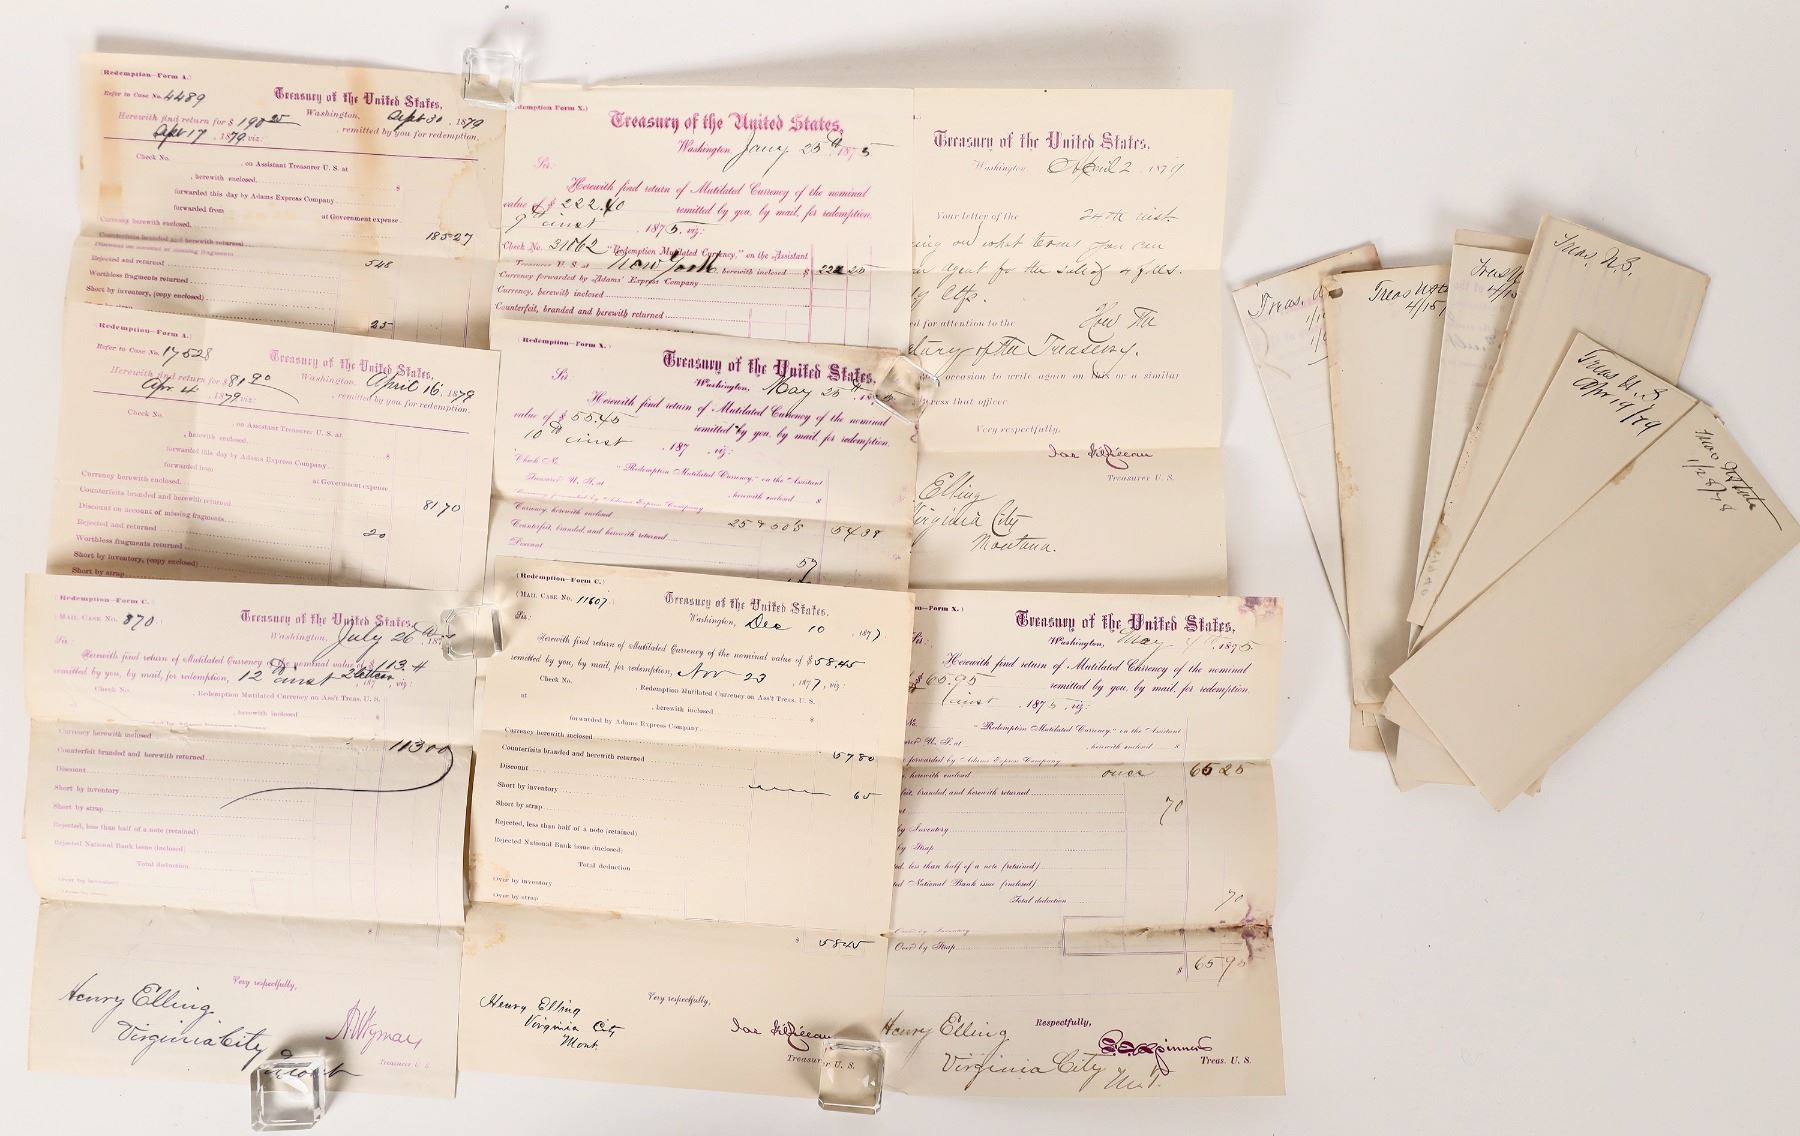 (Redemption—Form A.)
Refer to Case No. 4489
Treasury of the United States,
Washington, Apr 30, 1879
Herewith find return for $190 25
Apr 17, 1879 viz: , remitted by you for redemption,
Check No. , on Assistant Treasurer U. S. at
, herewith enclosed $
forwarded this day by Adams Express Company
forwarded from at Government expense
Currency herewith enclosed. 185 27
Counterfeits branded and herewith returned
Discount on account of missing fragments
Rejected and returned 5 48
Worthless fragments returned
Short by inventory, (copy enclosed)
25
(Redemption—Form A.)
Refer to Case No. 17528
Treasury of the United States,
Washington, April 16, 1879
Herewith find return for $81 90
Apr 4, 1879 viz: , remitted by you for redemption,
Check No. , on Assistant Treasurer U. S. at
, herewith enclosed $
forwarded this day by Adams Express Company
forwarded from at Government expense
Currency herewith enclosed 81 70
Counterfeits branded and herewith returned
Discount on account of missing fragments 20
Rejected and returned
Worthless fragments returned
Short by inventory, (copy enclosed)
Short by strap
(Redemption—Form C.)
(Mail Case No. 870)
Treasury of the United States,
Washington, July 26 187
Sir:
Herewith find return of Mutilated Currency of the nominal value of $ 113
remitted by you, by mail, for redemption, 12 inst 187 , viz:
Check No. , Redemption Mutilated Currency on Ass't Treas. U. S.
at , herewith inclosed $
Currency herewith inclosed 113 00
Counterfeit branded and herewith returned
Discount
Short by inventory
Short by strap
Rejected, less than half of a note (retained)
Rejected National Bank issue (inclosed)
Total deduction
Over by inventory
$
Very respectfully,
Henry Elling
Virginia City
Mont
A U Wyman
Treasurer U. S.
Redemption Form X.)
Treasury of the United States,
Washington, Jany 25th, 1875
Sir:
Herewith find return of Mutilated Currency of the nominal
value of $ 222.40 remitted by you, by mail, for redemption,
9th inst , 1875, viz:
Check No. 31862 "Redemption Mutilated Currency," on the Assistant
Treasurer U. S. at New York, herewith inclosed $ 222 25
Currency forwarded by Adams' Express Company
Currency, herewith inclosed
Counterfeit, branded and herewith returned
(Redemption—Form X.)
Treasury of the United States,
Washington, May 25th, 187
Sir:
Herewith find return of Mutilated Currency of the nominal
value of $ 55.45 remitted by you, by mail, for redemption,
10th inst , 187 , viz:
Check No. "Redemption Mutilated Currency," on the Assistant
Treasurer U. S. at , herewith inclosed $
Currency forwarded by Adams Express Company
Currency, herewith inclosed 25 & 50's 54 38
Counterfeit, branded, and herewith returned
Discount 57
(Redemption—Form C.)
(Mail Case No. 11607.)
Treasury of the United States,
Washington, Dec 10, 1877
Sir:
Herewith find return of Mutilated Currency of the nominal value of $58.45
remitted by you, by mail, for redemption, Nov 23, 1877, viz:
Check No. , Redemption Mutilated Currency on Ass't Treas. U. S.
at , herewith inclosed $
forwarded by Adams Express Company
Currency herewith inclosed 57 80
Counterfeits branded and herewith returned
Discount
Short by inventory 65
Short by strap
Rejected, less than half of a note (retained)
Rejected National Bank issue (inclosed)
Total deduction
Over by inventory
Over by strap
$ 58 45
Very respectfully,
Henry Elling
Virginia City
Mont.
Jas Gilfillan
Treasurer U. S.
Treasury of the United States,
Washington, April 2, 187
Your letter of the 24th inst
ing on what terms you can
agent for the sale of 4 pr
Ctfs.
ed for attention to the Hon The
tary of the Treasury.
occasion to write again on this or a similar
dress that officer
Very respectfully,
Jas Gilfillan
Treasurer U. S.
Elling
Virginia City
Montana.
on—Form X.)
Treasury of the United States,
Washington, May 4th, 1875
Sir:
Herewith find return of Mutilated Currency of the nominal
$ 65.95 remitted by you, by mail, for redemption,
inst , 1875, viz:
No. "Redemption Mutilated Currency," on the Assistant
urer U. S. at , herewith inclosed $
forwarded by Adams Express Company
herewith inclosed 65 25
feit, branded, and herewith returned
70
by Inventory
by Strap
ed, less than half of a note (retained)
ed National Bank issue (inclosed)
Total deduction 70
Over by Inventory
Over by Strap
$ 65 95
Respectfully,
Henry Elling
Virginia City
M.T.
F E Spinner
Treas. U. S.
Treas.
Treas
4/15
Treas
Treas. U. S.
Treas U. S
Apr 19/79
Treas
1/28/78